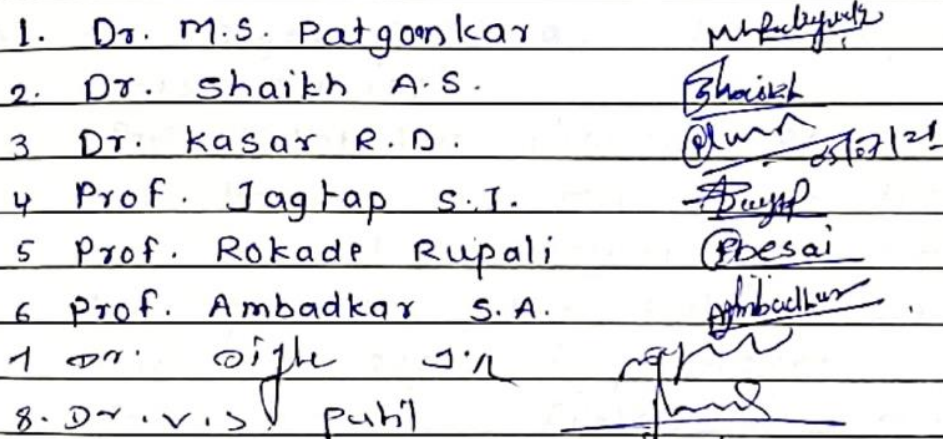 1. Dr. M.S. Patgaonkar
2. Dr. Shaikh A.S. Shaikh
3 Dr. Kasar R.D. 05/07/21
4 Prof. Jagtap S.J.
5 Prof. Rokade Rupali Desai
6 Prof. Ambadkar S.A. Ambadkar
7 Dr. Dighe J.R
8. Dr. V.S. Patil